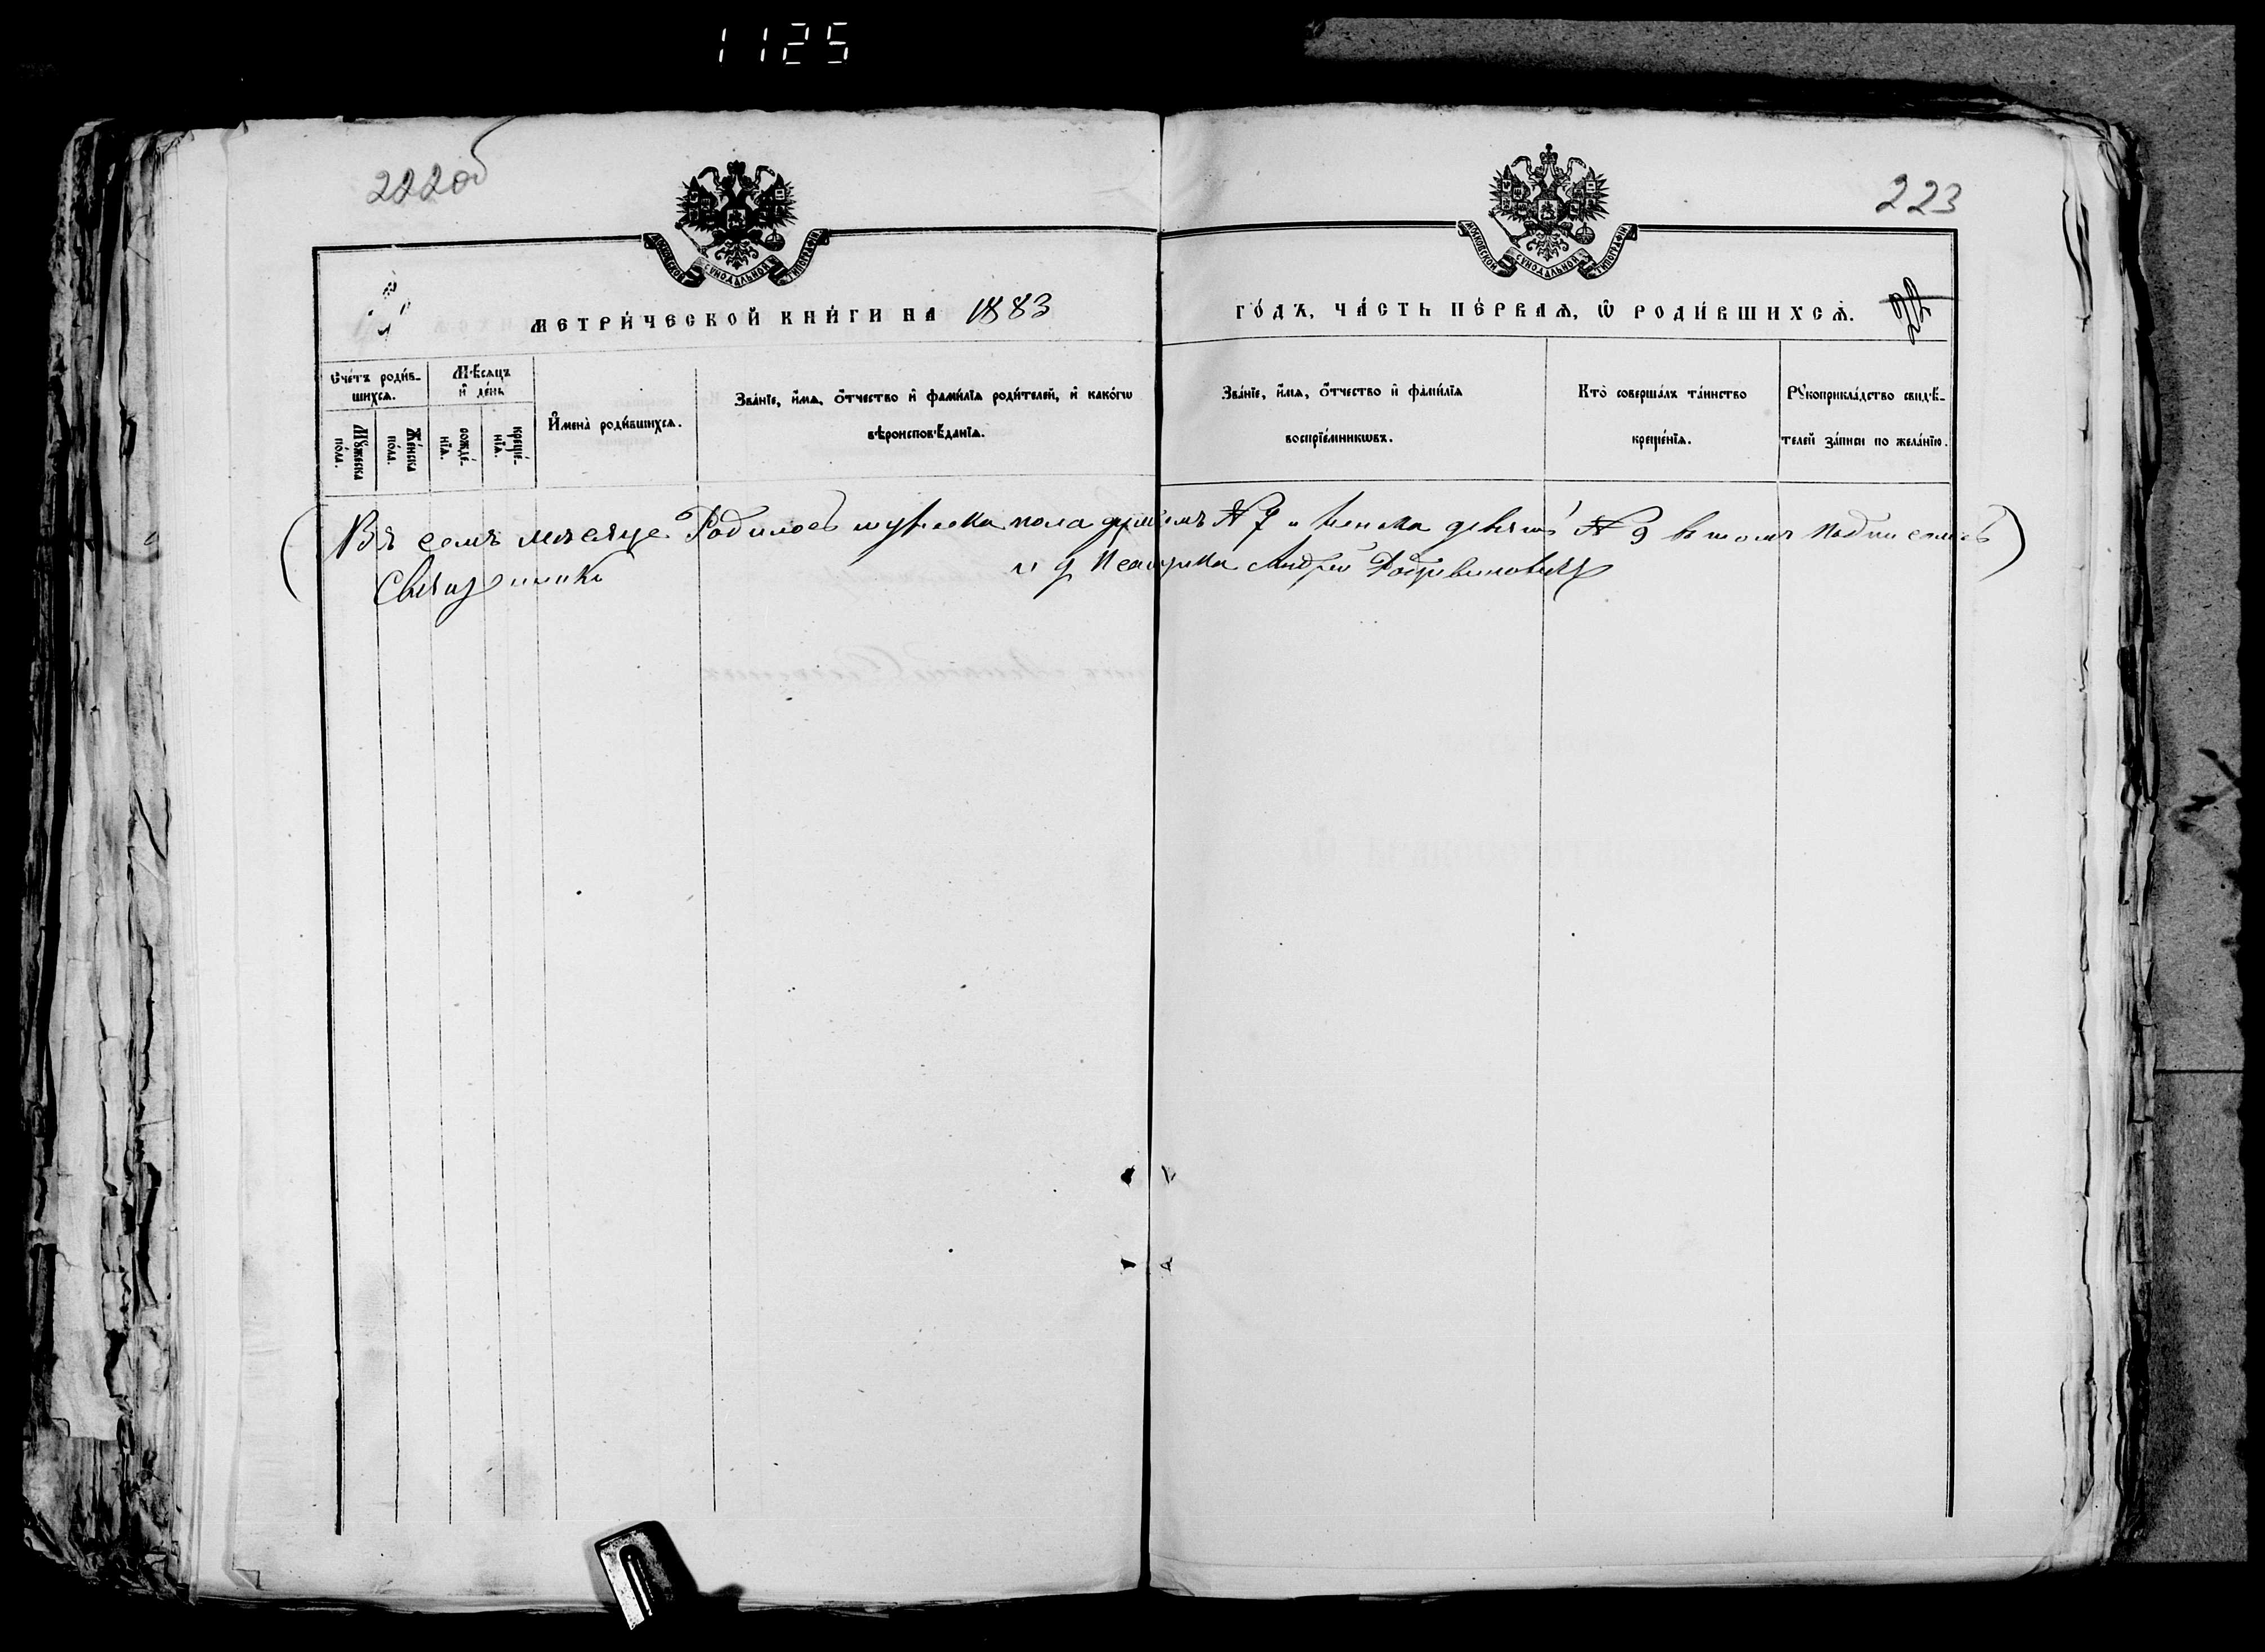 1125
222об
223
МОСКОВСКОЙ СѴНОДАЛЬНОЙ ТИПОГРАФІИ
МОСКОВСКОЙ СѴНОДАЛЬНОЙ ТИПОГРАФІИ
МЕТРИ́ЧЕСКОЙ КНИ́ГИ НА 1883
ГО́ДЪ, ЧА́СТЬ ПЕ́РВАѦ, Ѡ҆ РОДИ́ВШИХСѦ.
Сче́тъ роди́в-
шихсѧ.
Мꙋ́жеска
по́ла.
Же́нска
по́ла.
Мѣ́сѧцъ
и҆ де́нь
рожде́-
нїѧ.
креще́-
нїѧ.
И҆мена̀ роди́вшихсѧ.
Зва́нїе, и҆́мѧ, ѻ҆́тчество и҆ фами́лїѧ роди́телей, и҆ како́гѡ
вѣроисповѣ́данїѧ.
Зва́нїе, и҆́мѧ, ѻ҆́тчество и҆ фами́лїѧ
воспрїе́мникѡвъ.
Кто̀ соверша́лъ та́инство
креще́нїѧ.
Рꙋкоприкла́дство свидѣ́-
телей за́писи по жела́нїю.
Въ семъ месяце Родилось мужеска пола № 7 и женска девять № 9 въ томъ подписались
Священникъ
и д Псаломщика Андрей